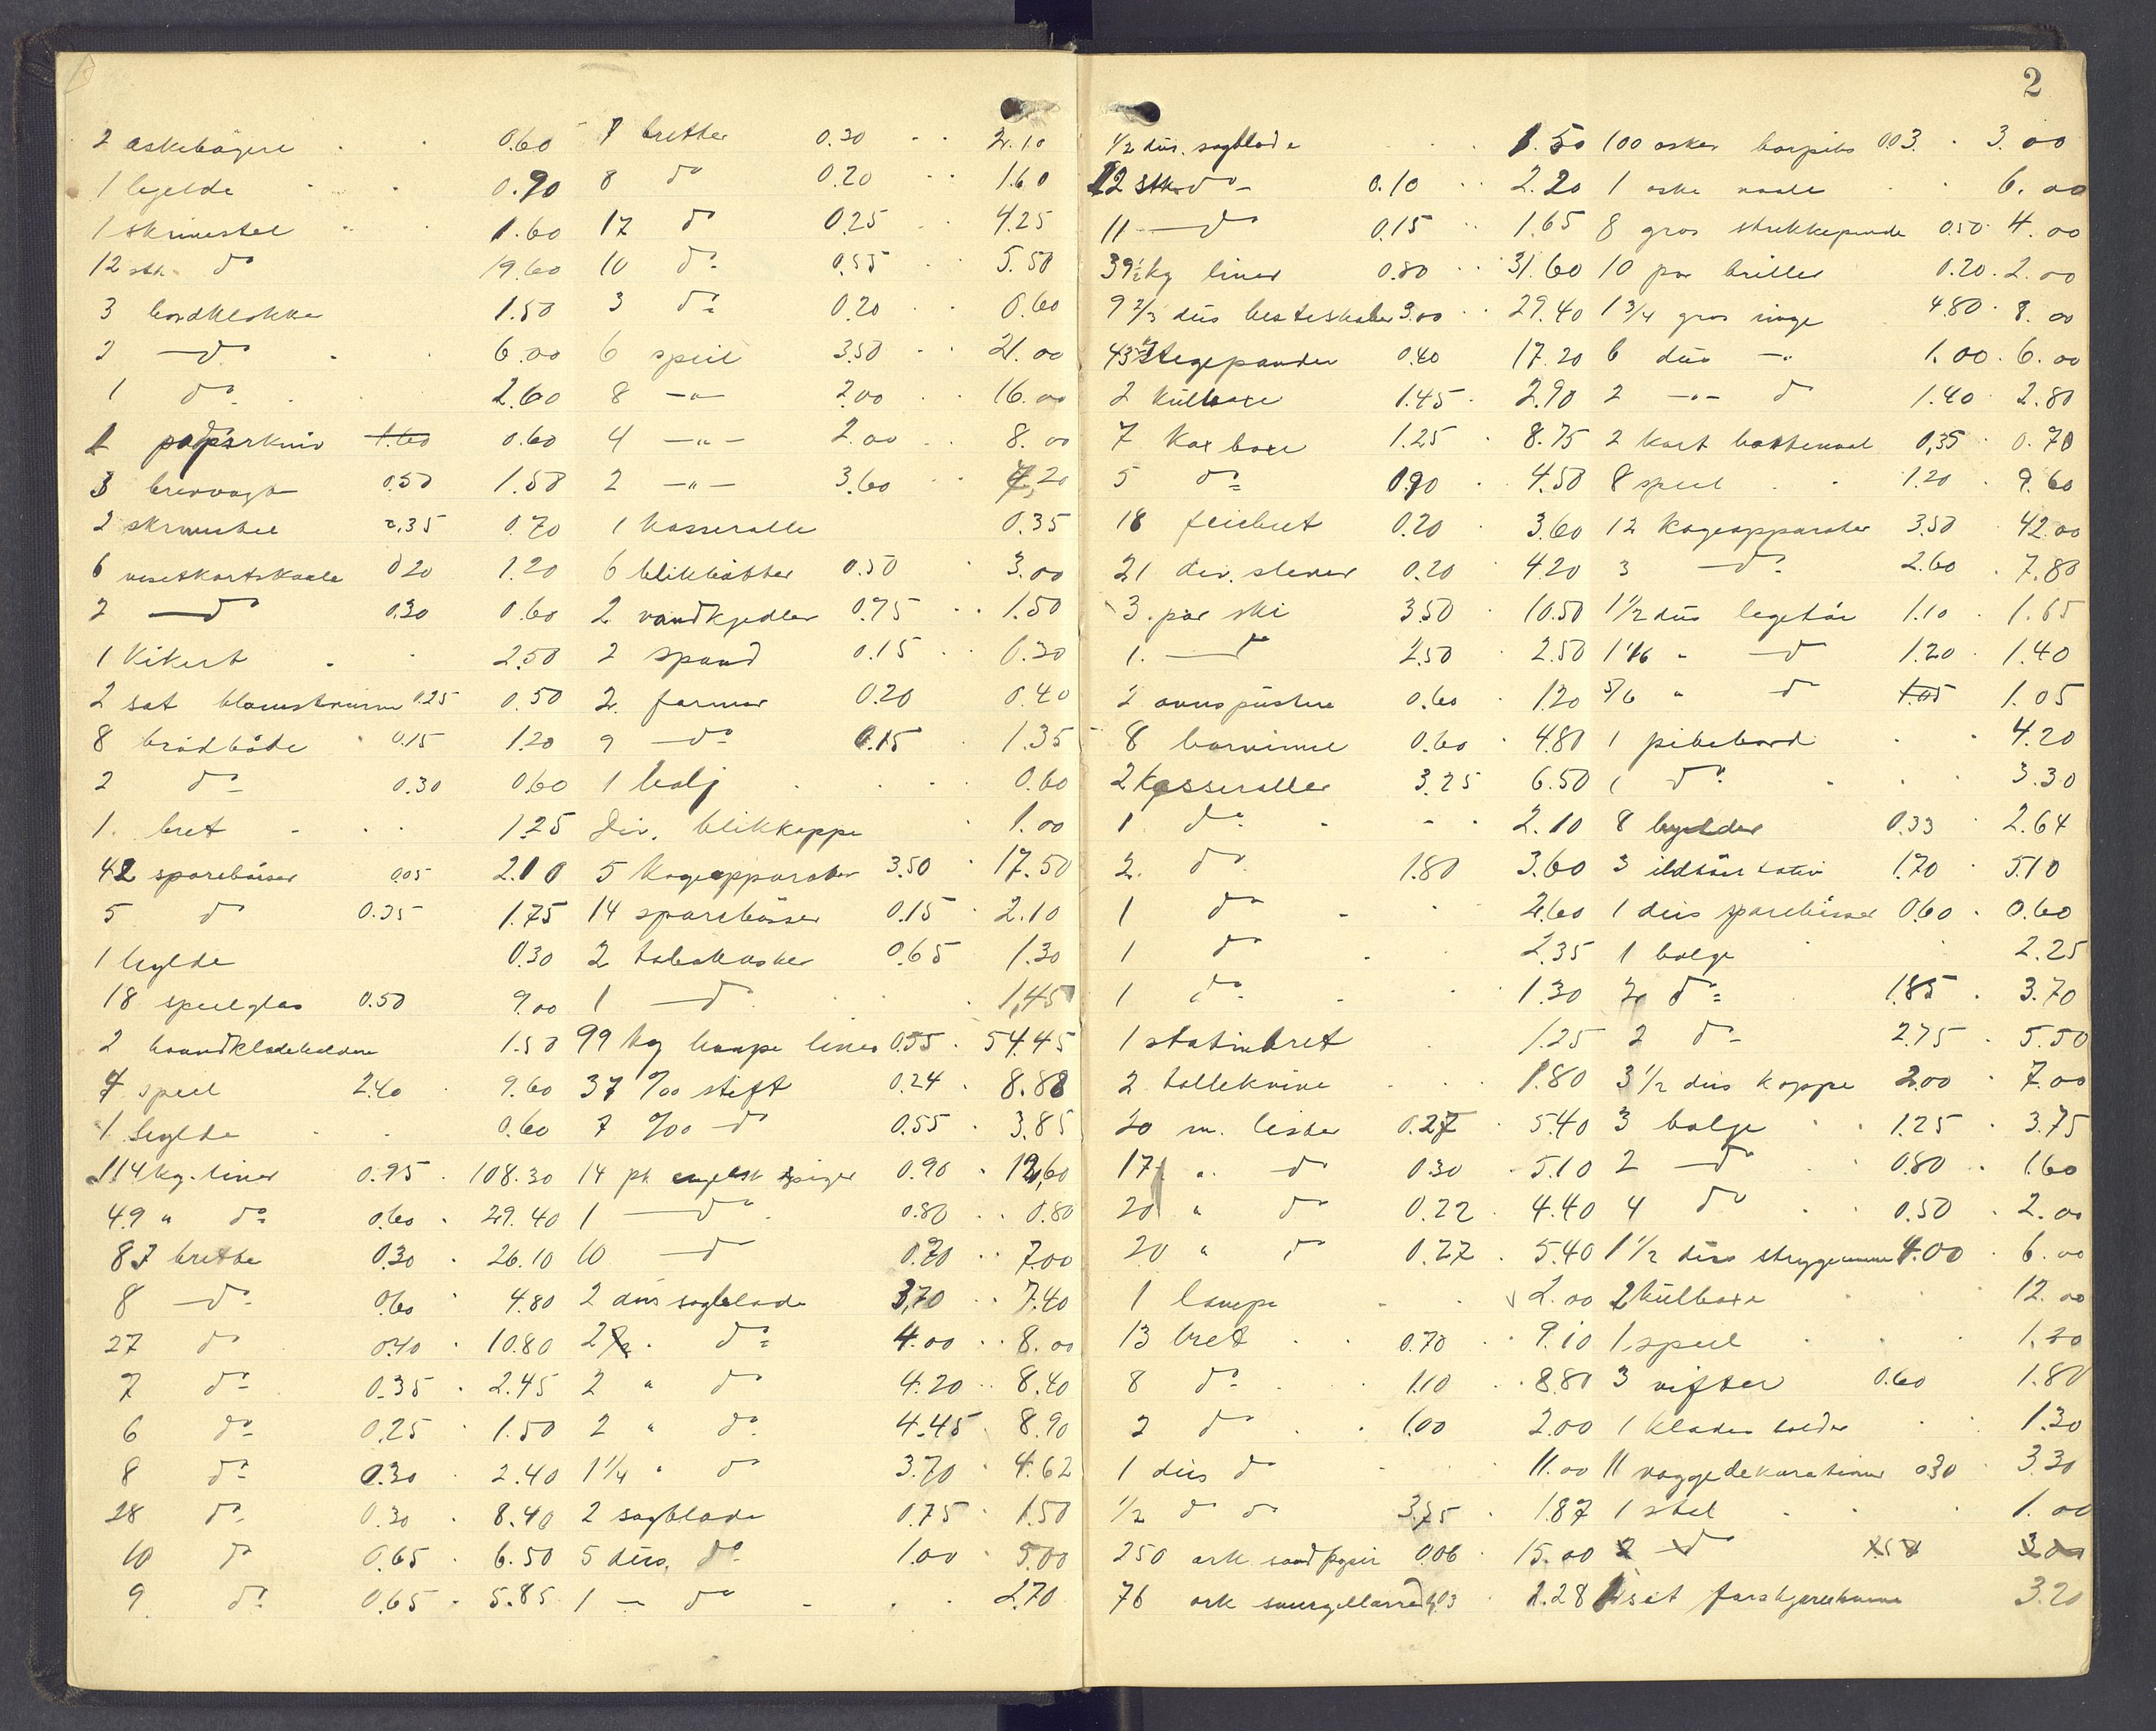 2 askebägere 0.60
1 hylde 0.90
1 skrivestel 1.60
12 stk. do 19.60
3 bordklokke 1.50
2 — do 6.00
1 do 2.60
1 papirkniv 1.60 0.60
3 brevvægt 0.50 1.50
2 skrivestel 0.35 0.70
6 visetkortskaale 0.20 1.20
2 — do 0.30 0.60
1 Kikert 2.50
2 sat 0.25 0.50
8 brödbåde 0.15 1.20
2 do 0.30 0.60
1 bret 1.25
42 sparebösser 0.05 2.10
5 do 0.35 1.75
1 hylde 0.30
18 speilglas 0.50 9.00
2 haandklædeholdere 1.50
4 speil 2.40 9.60
1 hylde 0.60
114 kg. liner 0.95 108.30
49 " do 0.60 29.40
87 brette 0.30 26.10
8 — do 0.60 4.80
27 do 0.40 10.80
7 do 0.35 2.45
6 do 0.25 1.50
8 do 0.30 2.40
28 do 0.30 8.40
10 do 0.65 6.50
9 do 0.65 5.85
7 bretter 0.30 2.10
8 do 0.20 1.60
17 do 0.25 4.25
10 do 0.55 5.50
3 do 0.20 0.60
6 speil 3.50 21.00
8 —"— 2.00 16.00
4 —"— 2.00 8.00
2 —"— 3.60 7.20
1 kasserolle 0.35
6 blikbötter 0.50 3.00
2 vandkjedler 0.75 1.50
2 spand 0.15 0.30
2 former 0.20 0.40
9 — do 0.15 1.35
1 balj 0.60
Div. blikkoppe 1.00
5 Kogeapparater 3.50 17.50
14 sparebösser 0.15 2.10
2 tobaksasker 0.65 1.30
1 — do 1.45
99 kg hampe liner 0.55 54.45
37 ‰ stift 0.24 8.88
7 ‰ do 0.55 3.85
14 pk engelsk spiger 0.90 12.60
1 — do 0.80 0.80
10 — do 0.70 7.00
2 dus sagblade 3.70 7.40
2 do 4.00 8.00
2 " do 4.20 8.40
2 " do 4.45 8.90
1 1/4 " do 3.70 4.62
2 sagblade 0.75 1.50
5 dus. do 1.00 5.00
1 — do 2.70
2
1/2 dus. sagblade 1.50
22 stk do 0.10 2.20
11 — do 0.15 1.65
39 1/2 kg liner 0.80 31.60
9 2/3 dus hesteskaber 3.00 29.40
43 Stegepander 0.40 17.20
2 Kulboxe 1.45 2.90
7 Kox boxe 1.25 8.75
5 do 0.90 4.50
18 feiebret 0.20 3.60
21 div. slever 0.20 4.20
3 par ski 3.50 10.50
1 — do 2.50 2.50
2 ovnspustere 0.60 1.20
8 borvinne 0.60 4.80
2 Kasseroller 3.25 6.50
1 do 2.10
2 do 1.80 3.60
1 do 2.60
1 do 2.35
1 do 1.30
1 stativbret 1.25
2 tolleknive 1.80
20 m. lister 0.27 5.40
17 " do 0.30 5.10
20 " do 0.22 4.40
20 " do 0.27 5.40
1 lampe 2.00
13 bret 0.70 9.10
8 do 1.10 8.80
2 do 1.00 2.00
1 dus do 11.00
1/2 do do 3.75 1.87
250 ark sandpapir 0.06 15.00
76 ark smergellærred 0.03 2.28
100 asker harpiks 0.03 3.00
1 aske naale 6.00
8 gros strikkepinde 0.50 4.00
10 par briller 0.20 2.00
1 3/4 gros ringe 4.80 8.00
6 dus —"— 1.00 6.00
2 —"— do 1.40 2.80
2 kart hattenaal 0.35 0.70
8 speil 1.20 9.60
12 Kogeapparater 3.50 42.00
3 — do 2.60 7.80
1 1/2 dus legetöi 1.10 1.65
1 1/6 " — do 1.20 1.40
5/6 " do 1.05 1.05
1 pibebord 4.20
1 do 3.30
8 hylder 0.33 2.64
3 ildtöistativ 1.70 5.10
1 dus sparebösser 0.60 0.60
1 balge 2.25
2 do 1.85 3.70
2 do 2.75 5.50
3 1/2 dus koppe 2.00 7.00
3 balge 1.25 3.75
2 — do 0.80 1.60
4 do 0.50 2.00
1 1/2 dus 4.00 6.00
2 Kulboxe 12.00
1 speil 1.20
3 vifter 0.60 1.80
1 klædesholder 1.30
11 væggedekorationer 0.30 3.30
1 stel 1.00
2 — do 1.50 3.00
1 sæt 3.20